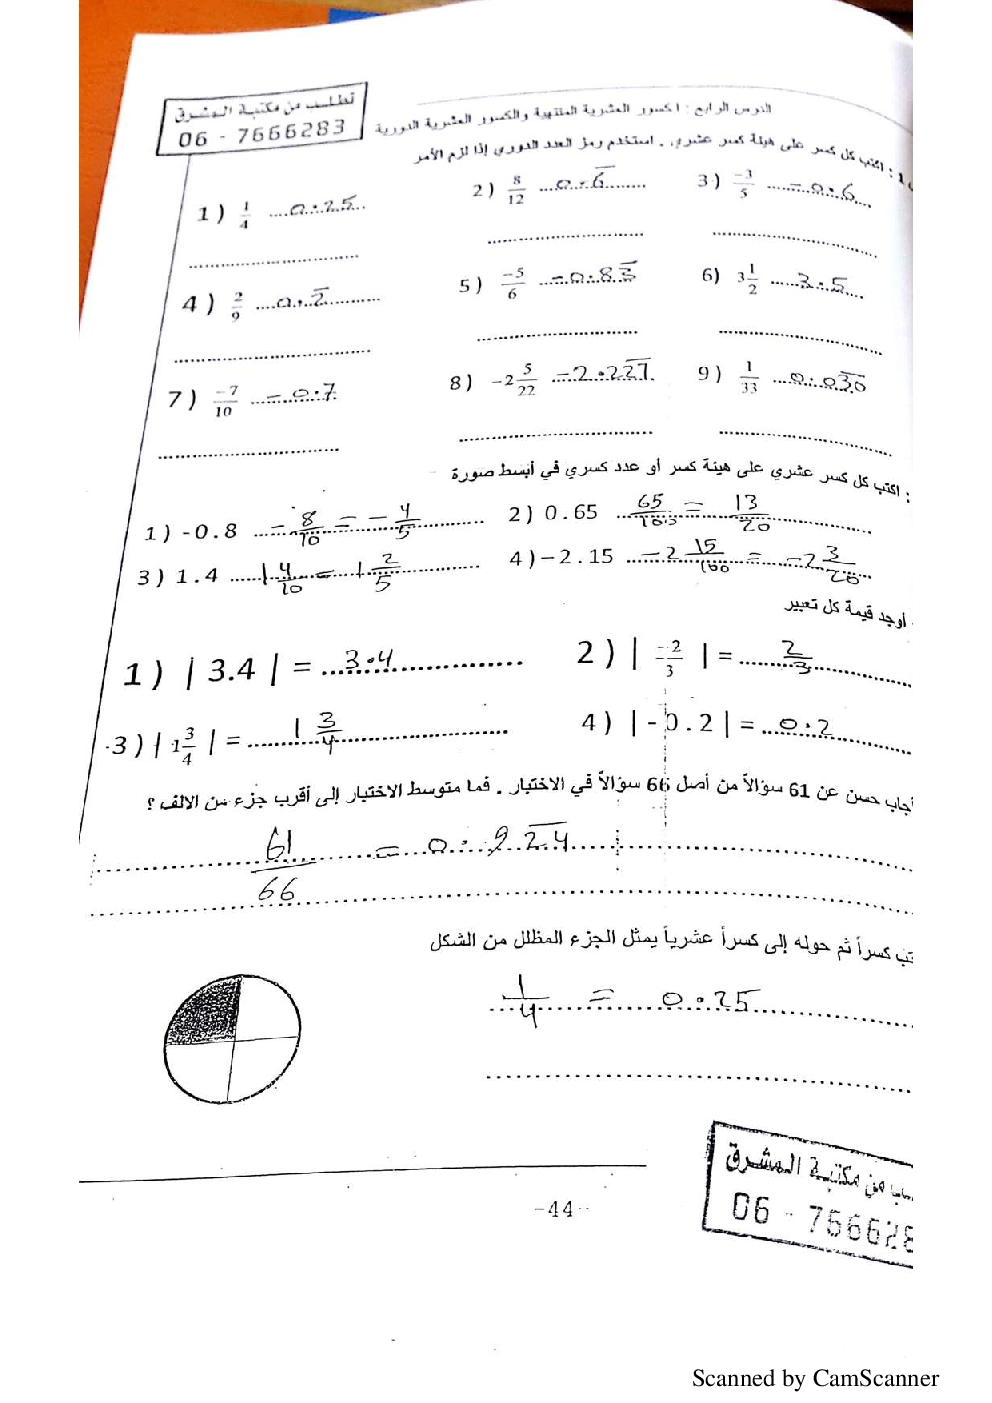 تطلب من مكتبة المشرق
06 - 7666283
الدرس الرابع : الكسور العشرية المنتهية والكسور العشرية الدورية
1 : اكتب كل كسر على هيئة كسر عشري . استخدم رمز العدد الدوري إذا لزم الأمر
1 ) 1/4 0.25 2 ) 8/12 0.6̅ 3 ) -3/5 -0.6
4 ) 2/9 0.2̅ 5 ) -5/6 -0.83̅ 6) 3 1/2 3.5
7 ) -7/10 -0.7 8 ) -2 5/22 -2.22̅7̅ 9 ) 1/33 0.03̅0̅
: اكتب كل كسر عشري على هيئة كسر أو عدد كسري في أبسط صورة
1 ) -0.8 -8/10 = -4/5 2 ) 0.65 65/100 = 13/20
3 ) 1.4 1 4/10 = 1 2/5 4 ) -2.15 -2 15/100 = -2 3/20
أوجد قيمة كل تعبير
1 ) | 3.4 | = 3.4 2 ) | -2/3 | = 2/3
3 ) | 1 3/4 | = 1 3/4 4 ) | -0.2 | = 0.2
أجاب حسن عن 61 سؤالاً من أصل 66 سؤالاً في الاختبار . فما متوسط الاختبار إلى أقرب جزء من الالف ؟
61/66 = 0.92̅4̅
تب كسراً ثم حوله إلى كسراً عشرياً يمثل الجزء المظلل من الشكل
1/4 = 0.25
ـب من مكتبة المشرق
06 - 766628
-44-
Scanned by CamScanner